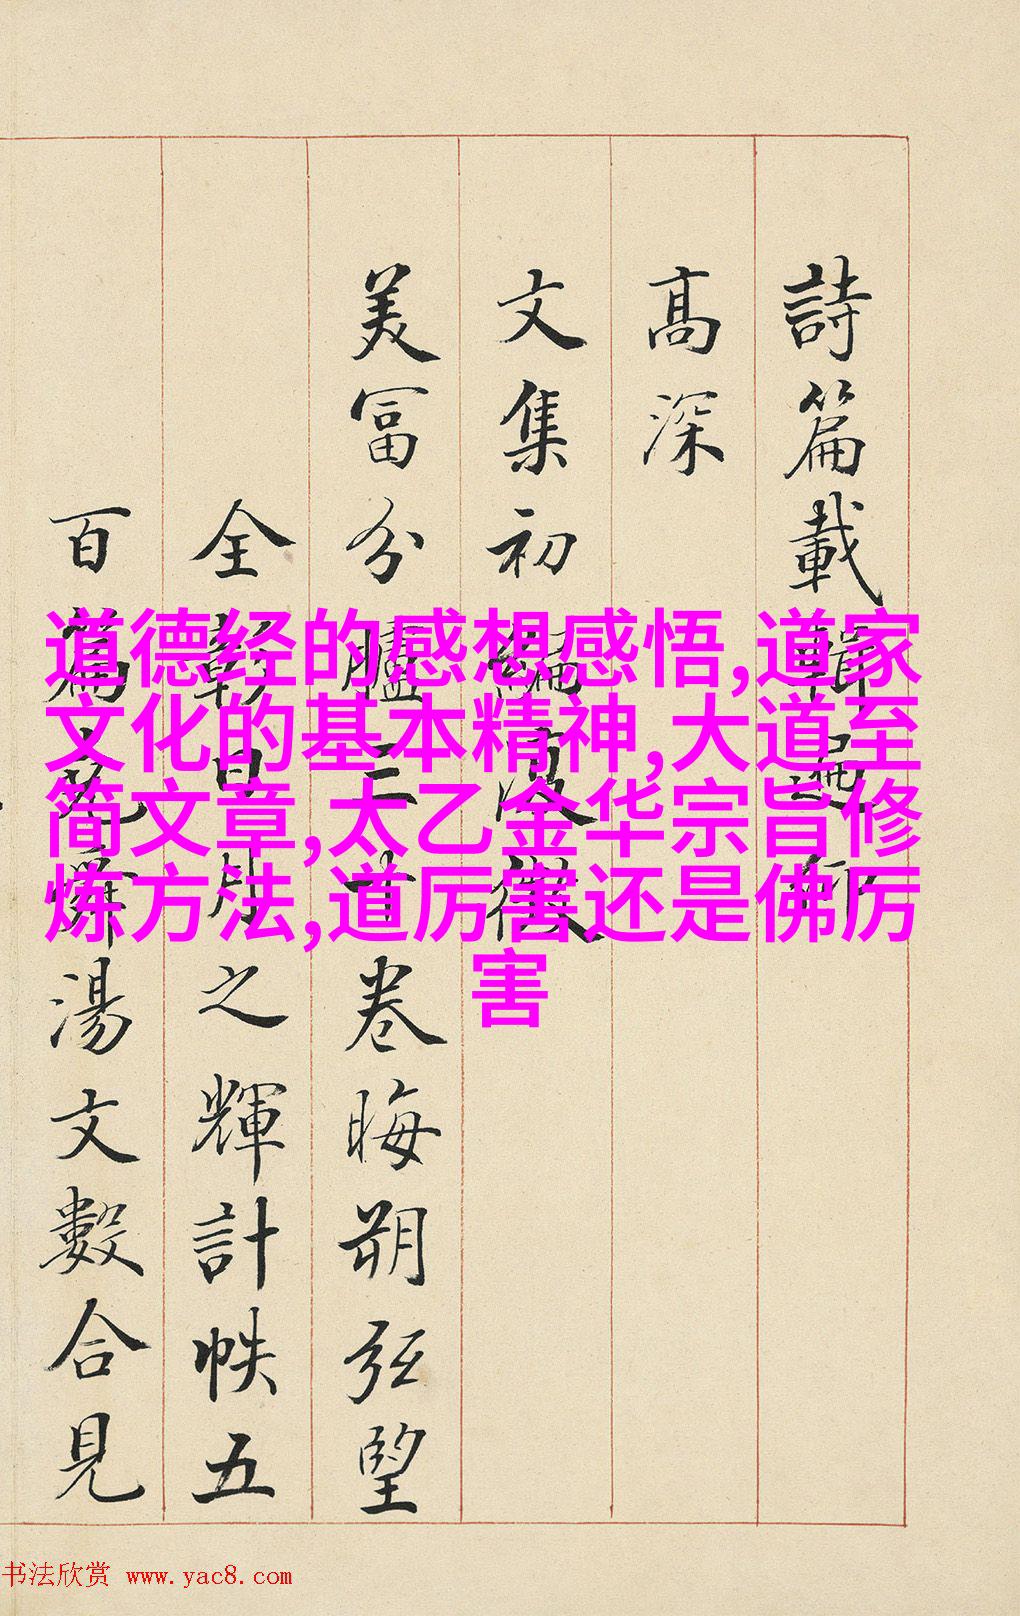 詩篇載
高深
文集初
美富分
卷晦朔弦望
全
之輝計帙五
百
湯文數合見
道德经的感想感悟,道家
文化的基本精神,大道至
简文章,太乙金华宗旨修
炼方法,道厉害还是佛厉
害
书法欣赏 www.yac8.com